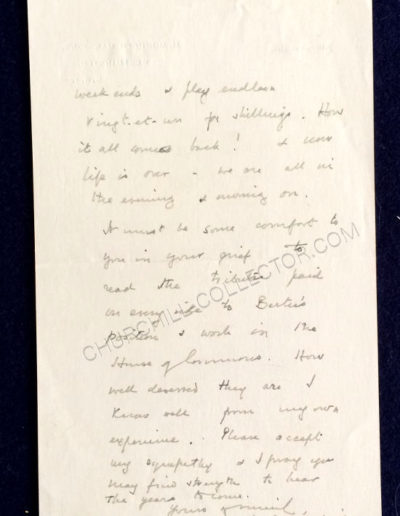 week ends & play endless
Vingt-et-un for shillings. How
it all comes back! & now
life is over - we are all in
the evening & moving on.
It must be some comfort to
you in your grief to
read the tributes paid
on every side to Bertie's
position & work in the
House of Commons. How
well deserved they are I
know well from my own
experience. Please accept
my sympathy & I pray you
may find strength to bear
the years to come.
Yours
CHURCHILLCOLLECTOR.COM